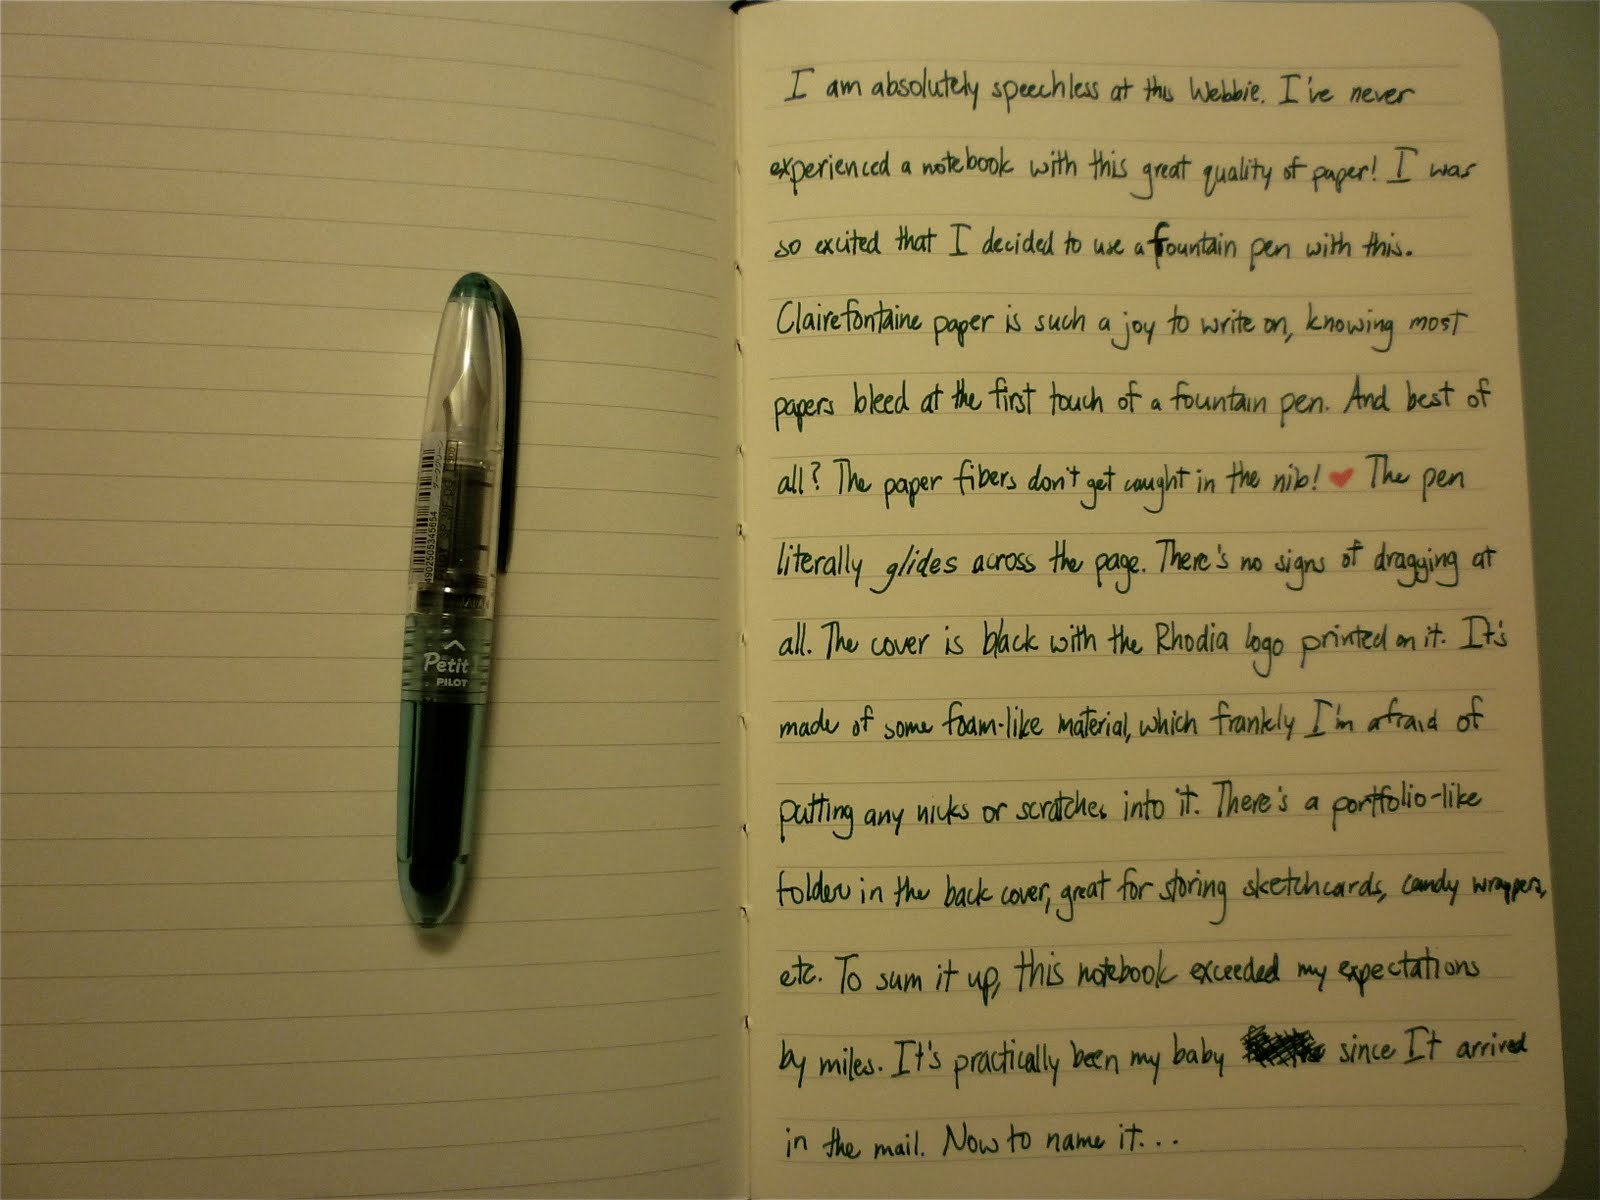 4902505345654
Petit
PILOT
I am absolutely speechless at this Webbie. I've never
experienced a notebook with this great quality of paper! I was
so excited that I decided to use a fountain pen with this.
Clairefontaine paper is such a joy to write on, knowing most
papers bleed at the first touch of a fountain pen. And best of
all? The paper fibers don't get caught in the nib! ♥ The pen
literally glides across the page. There's no signs of dragging at
all. The cover is black with the Rhodia logo printed on it. It's
made of some foam-like material, which frankly I'm afraid of
putting any nicks or scratches into it. There's a portfolio-like
folder in the back cover, great for storing sketchcards, candy wrappers,
etc. To sum it up, this notebook exceeded my expectations
by miles. It's practically been my baby since It arrived
in the mail. Now to name it...